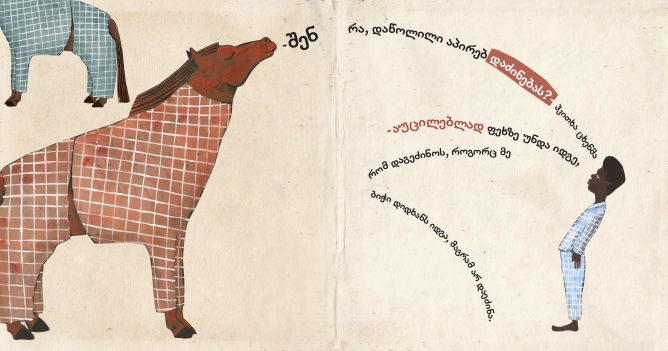 -შენ რა, დაწოლილი აპირებ დაძინებას?- ჰკითხა ცხენმა
-აუცილებლად ფეხზე უნდა იდგე,
რომ დაგეძინოს, როგორც მე
ბიჭი დიდხანს იდგა, მაგრამ არ დაეძინა.